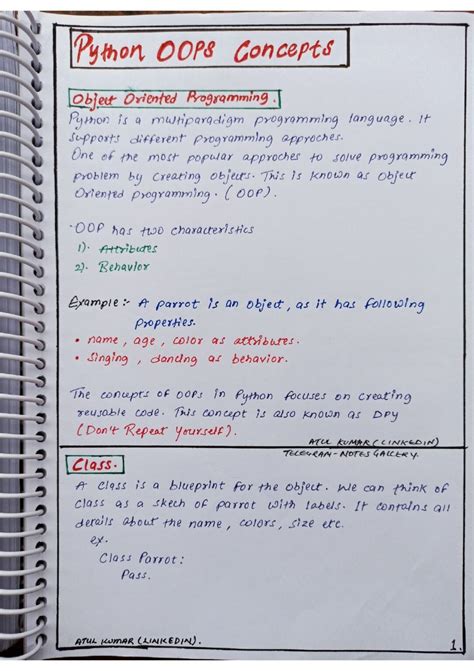 Python OOPS Concepts
Object Oriented Programming.
Python is a multiparadigm programming language. It
supports different programming approches.
One of the most popular approches to solve programming
problem by creating objects. This is known as object
Oriented programming. (OOP).
-OOP has two characteristics
1). Attributes
2). Behavior
Example:- A parrot is an object, as it has following
properties.
• name, age, color as attributes.
• singing, dancing as behavior.
The concepts of OOPs in Python focuses on creating
reusable code. This concept is also known as DPY
(Don't Repeat Yourself).
ATUL KUMAR (LINKEDIN)
TELEGRAM-NOTES GALLERY.
Class.
A class is a blueprint for the object. We can think of
class as a skech of parrot with labels. It contains all
details about the name, colors, size etc.
ex.
Class Parrot:
Pass.
ATUL KUMAR (LINKEDIN).
1.